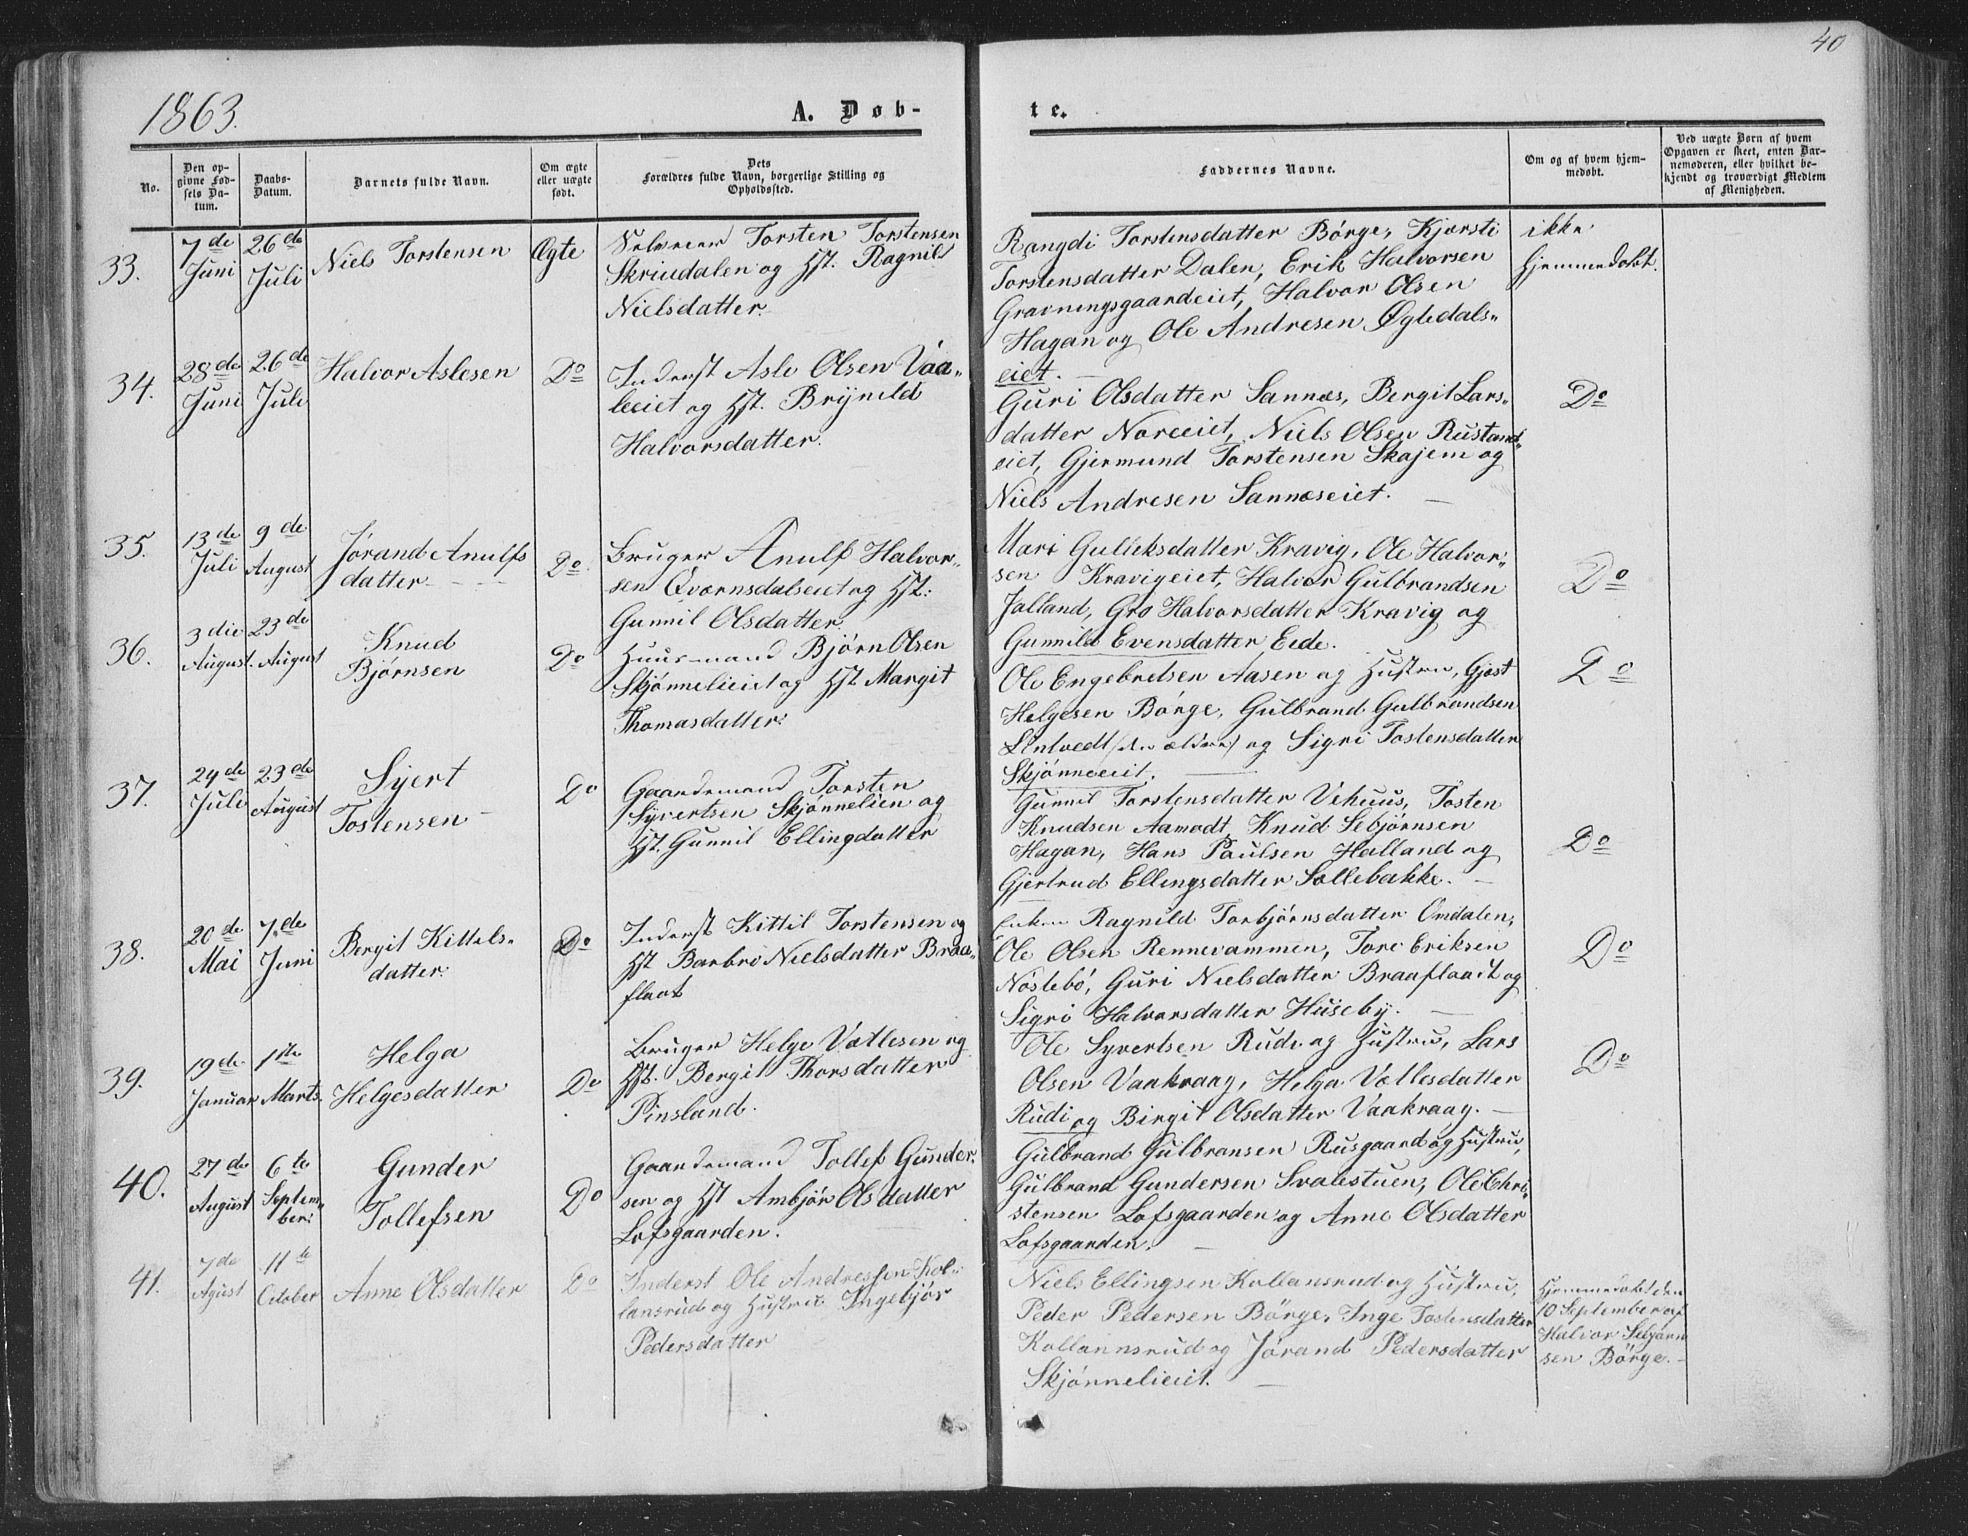 40
1863.
A. Døb-
te.
No.
Den op-
givne Fød-
sels Da-
tum.
Daabs-
Datum.
Barnets fulde Navn.
Om ægte
eller uægte
født.
Dets
Forældres fulde Navn, borgerlige Stilling og
Opholdssted.
Faddernes Navne.
Om og af hvem hjem-
medøbt.
Ved uægte Børn af hvem
Opgaven er skeet, enten Bar-
nemoderen, eller hvilket be-
kjendt og troværdigt Medlem
af Menigheden.
33.
7de
Juni
26de
Juli
Niels Torstensen
Ægte
Selveier Torsten Torstensen
Skrindalen og Hst. Ragnild
Nielsdatter.
Rangdi Torstensdatter Børge, Kjersti
Torstensdatter Dalen, Erik Halvorsen
Gravningsgaardeiet, Halvor Olsen
Hagan og Ole Andresen Øgledals-
eiet.
ikke
hjemmedøbt.
34.
28de
Juni
26de
Juli
Halvor Aslesen
Do
Inderst Asle Olsen Vaa-
leeiet og Hst. Brynild
Halvorsdatter.
Guri Olsdatter Sannæs, Bergit Lars-
datter Noreeiet, Niels Olsen Rustand-
eiet, Gjermund Torstensen Skajem og
Niels Andresen Sannæseiet.
Do
35.
13de
Juli
9de
August
Jørand Anulfs
datter
Do
Bruger Anulf Halvor-
sen Qvernsdalseiet og Hst:
Gunnil Olsdatter
Mari Gulliksdatter Kravig, Ole Halvor-
sen Kravigeiet, Halvor Gulbrandsen
Jalland, Gro Halvorsdatter Kravig og
Gunnild Evensdatter Eede.
Do
36.
3die
August.
23de
August
Knud
Bjørnsen
Do
Huusmand Bjørn Olsen
Skjønnelieiet og Hst. Margit
Thomasdatter:
Ole Engebretsen Aasen og Hustru, Gjest
Helgesen Børge, Gulbrand Gulbrandsen
Lintvedt (den ældre) og Sigri Tostensdatter
Skjønneeiet.
Do
37.
24de
Juli
23de
August
Syert
Tostensen
Do
Gaardmand Torsten
Syvertsen Skjønnelien og
Hst. Gunnil Ellingdatter
Gunnil Torstensdatter Vehuus, Tosten
Knudsen Aamodt, Knud Sebjørnsen
Hagan, Hans Paulsen Halland og
Gjertrud Ellingsdatter Søllebakke.
Do
38.
20de
Mai
7de
Juni
Bergit Kittels-
datter.
Do
Inderst Kittil Torstensen og
Hst Barbro Nielsdatter Braa-
flaat
Enken Ragnild Torbjørnsdatter Omdalen,
Ole Olsen Rennevammen, Tore Eriksen
Nøslebø, Guri Nielsdatter Braaflaadt og
Sigri Halvorsdatter Huseby.
Do
39.
19de
Januar
1ste
Marts.
Helga
Helgesdatter
Do
Bruger Helge Vetlesen og
Hst. Bergit Thorsdatter
Pinsland.
Ole Syvertsen Rudi og Hustru, Lars
Olsen Vaakraag, Helga Vetlesdatter
Rudi og Birgit Olsdatter Vaakraag.
Do
40.
27de
August
6te
Septem-
ber:
Gunder
Tollefsen
Do
Gaardmand Tollef Gunder-
sen og Hst Ambjør Olsdatter
Lofsgaarden.
Gulbrand Gulbransen Rusgaard og Hustru,
Gulbrand Gundersen Svalestuen, Ole Chri-
stensen Lofsgaarden og Anne Olsdatter
Lofsgaarden.
41.
7de
Agust
11te
October
Anne Olsdatter
Do
Inderst Ole Andressen Kol-
lansrud og Hustru Ingebjør
Pedersdatter
Niels Ellingsen Kollansrud og Hustru,
Peder Pedersen Børge, Inge Tostensdatter
Kollannsrud og Jørand Pedersdatter
Skjønnelieiet.
Hjemmedøbt den
10 September af
Halvor Sebjørn
sen Børge.